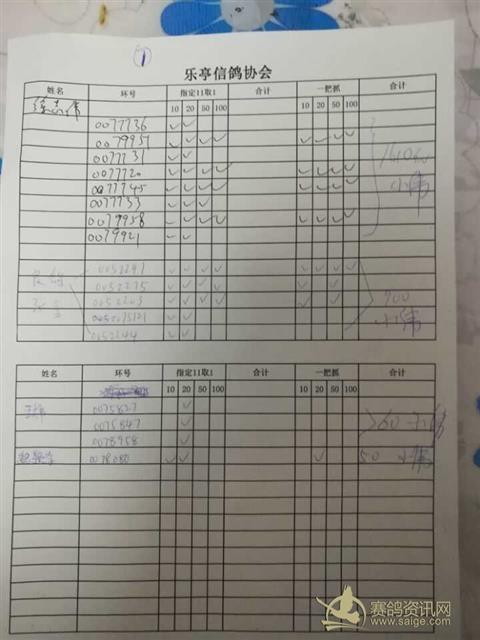 1
乐亭信鸽协会
姓名 环号 指定11取1 合计 一把抓 合计
10 20 50 100 10 20 50 100
0077736
0079951
0077731
0077720
0077745
0077733
小伟
0079958
0079921
0052297
0052275
0052203
900
小伟
0052244
姓名 环号 指定11取1 合计 一把抓 合计
10 20 50 100 10 20 50 100
0075827
0075847
60 小伟
0078958
0078080 50 小伟
赛鸽资讯网
www.saige.com